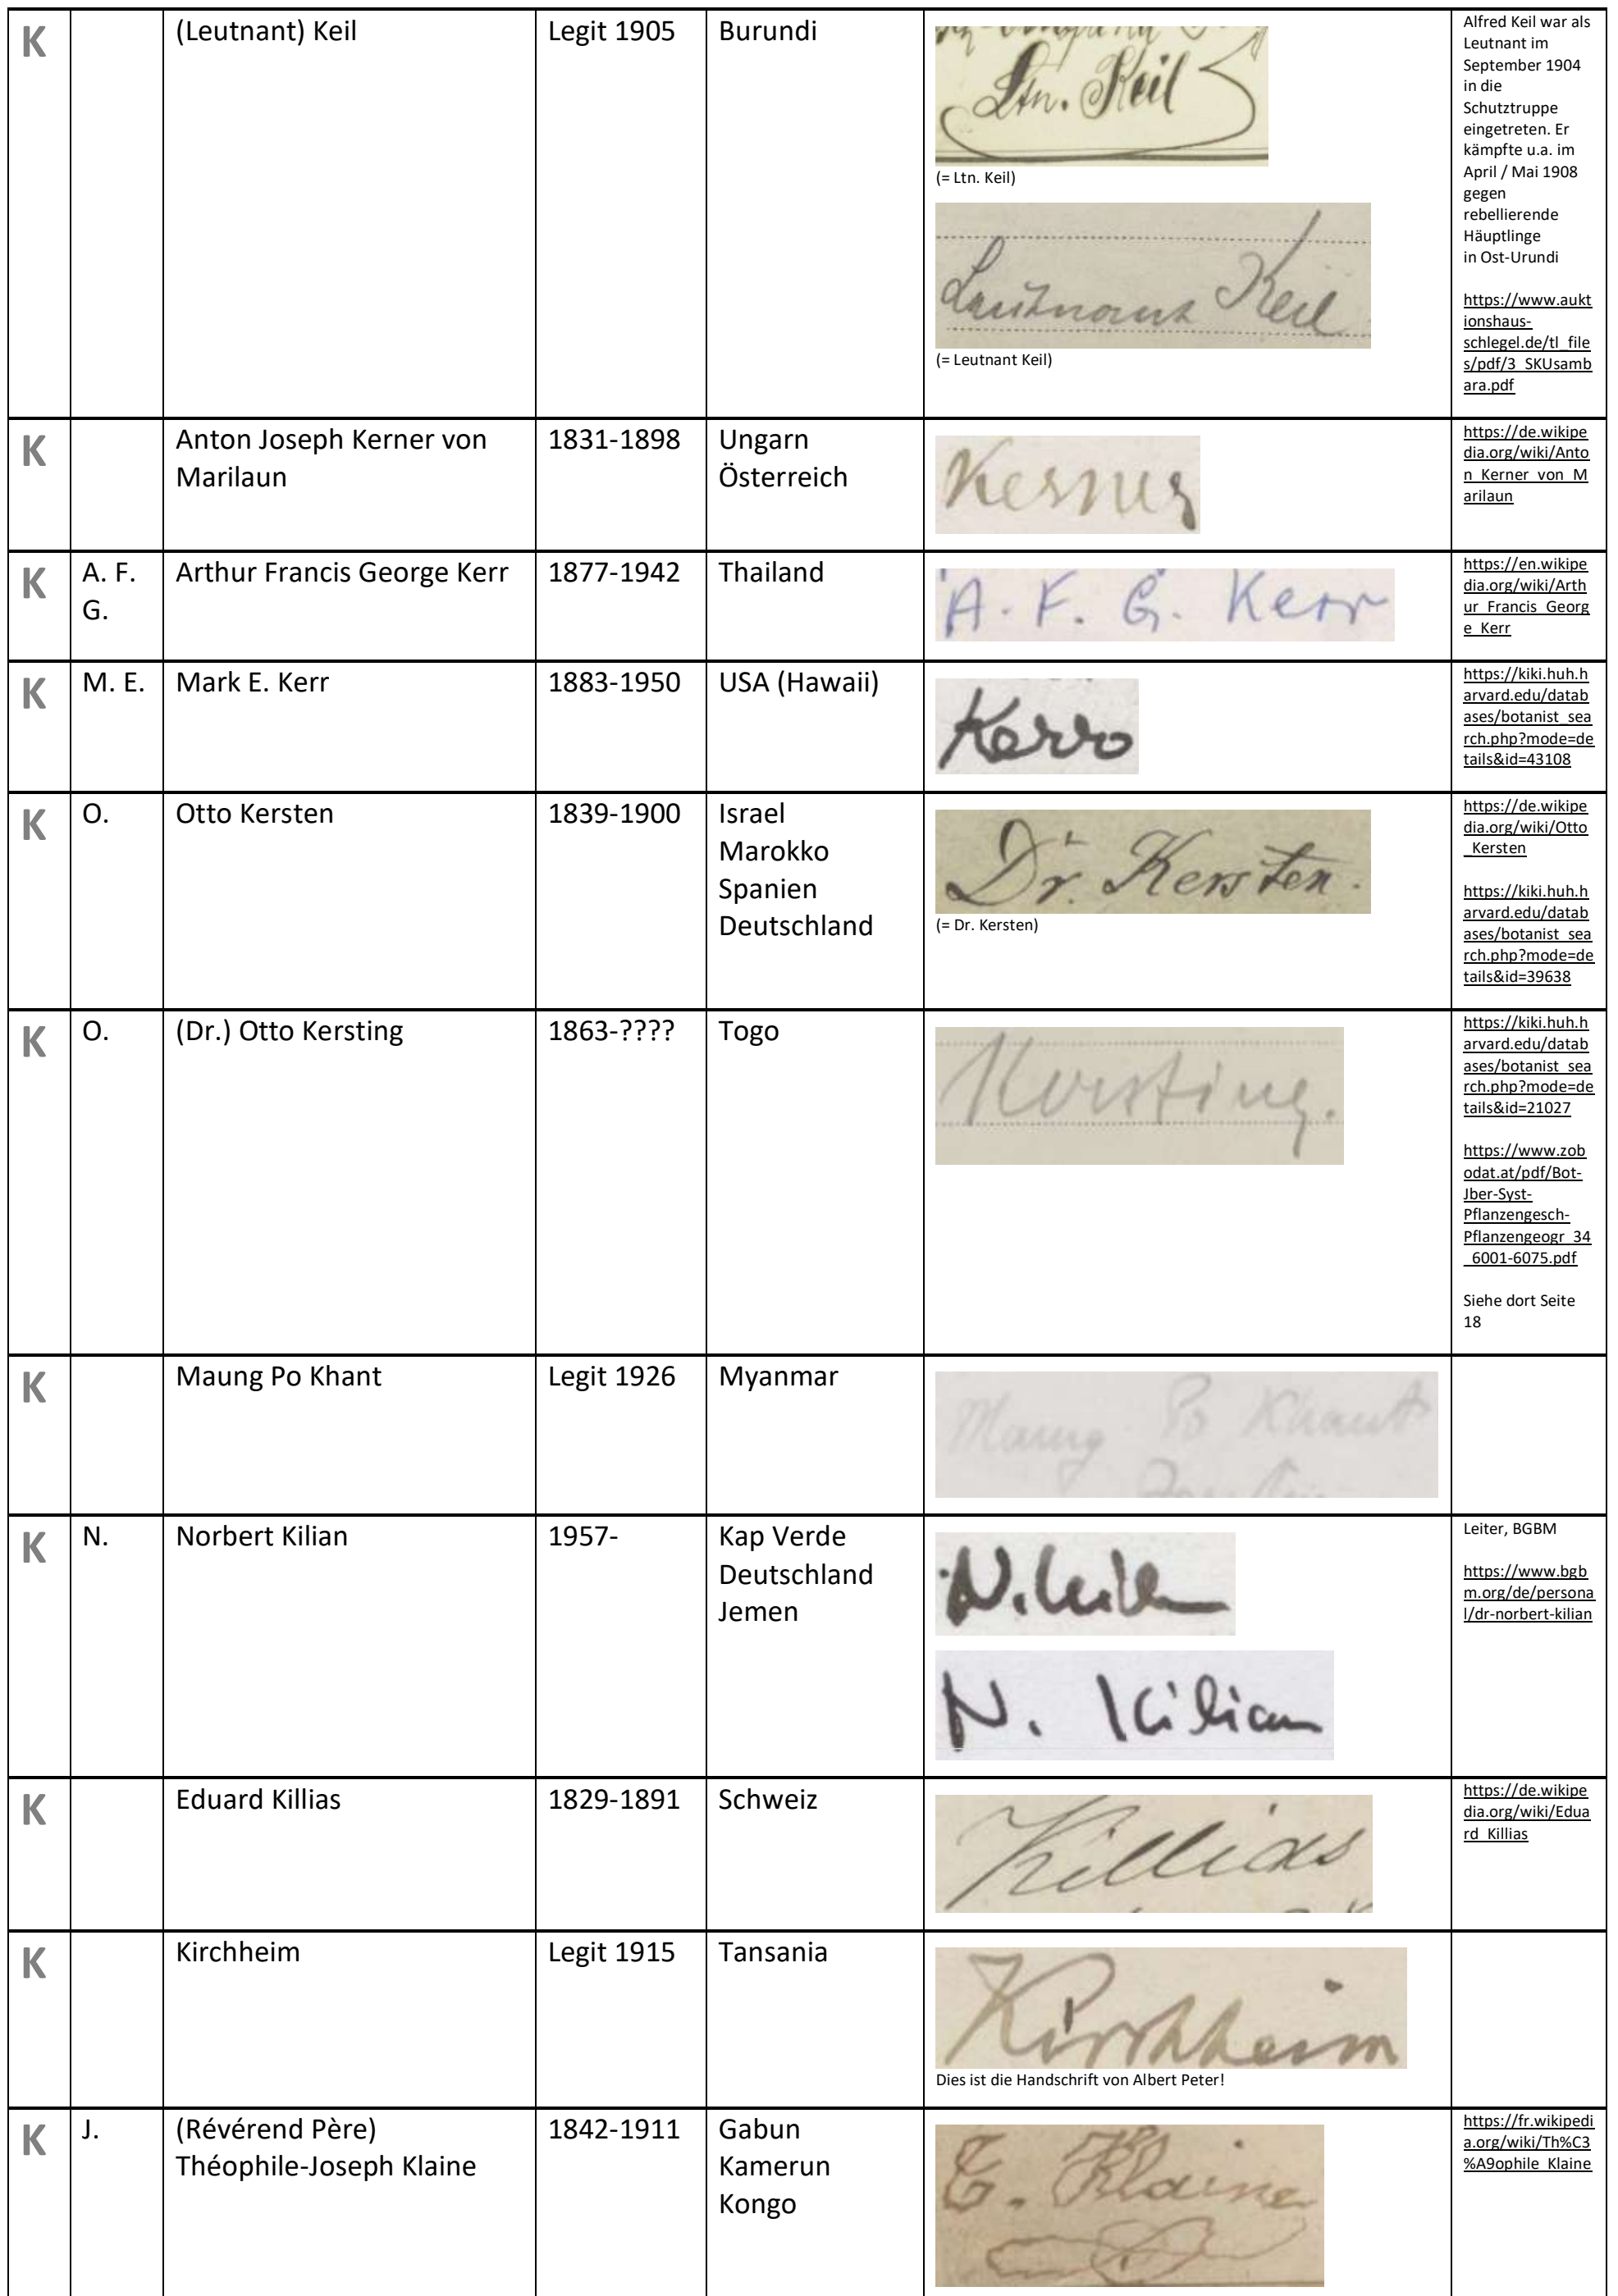 K
(Leutnant) Keil
Legit 1905
Burundi
Ltn. Keil
(= Ltn. Keil)
Leutnant Keil
(= Leutnant Keil)
Alfred Keil war als
Leutnant im
September 1904
in die
Schutztruppe
eingetreten. Er
kämpfte u.a. im
April / Mai 1908
gegen
rebellierende
Häuptlinge
in Ost-Urundi
https://www.aukt
ionshaus-
schlegel.de/tl_file
s/pdf/3_SKUsamb
ara.pdf
K
Anton Joseph Kerner von
Marilaun
1831-1898
Ungarn
Österreich
Kerner
https://de.wikipe
dia.org/wiki/Anto
n_Kerner_von_M
arilaun
K
A. F.
G.
Arthur Francis George Kerr
1877-1942
Thailand
A. F. G. Kerr
https://en.wikipe
dia.org/wiki/Arth
ur_Francis_Georg
e_Kerr
K
M. E.
Mark E. Kerr
1883-1950
USA (Hawaii)
Kerr
https://kiki.huh.h
arvard.edu/datab
ases/botanist_sea
rch.php?mode=de
tails&id=43108
K
O.
Otto Kersten
1839-1900
Israel
Marokko
Spanien
Deutschland
Dr. Kersten.
(= Dr. Kersten)
https://de.wikipe
dia.org/wiki/Otto
_Kersten
https://kiki.huh.h
arvard.edu/datab
ases/botanist_sea
rch.php?mode=de
tails&id=39638
K
O.
(Dr.) Otto Kersting
1863-????
Togo
Kersting.
https://kiki.huh.h
arvard.edu/datab
ases/botanist_sea
rch.php?mode=de
tails&id=21027
https://www.zob
odat.at/pdf/Bot-
Jber-Syst-
Pflanzengesch-
Pflanzengeogr_34
_6001-6075.pdf
Siehe dort Seite
18
K
Maung Po Khant
Legit 1926
Myanmar
Maung Po Khant
K
N.
Norbert Kilian
1957-
Kap Verde
Deutschland
Jemen
N. Kilian
N. Kilian
Leiter, BGBM
https://www.bgb
m.org/de/persona
l/dr-norbert-kilian
K
Eduard Killias
1829-1891
Schweiz
Killias
https://de.wikipe
dia.org/wiki/Edua
rd_Killias
K
Kirchheim
Legit 1915
Tansania
Kirchheim
Dies ist die Handschrift von Albert Peter!
K
J.
(Révérend Père)
Théophile-Joseph Klaine
1842-1911
Gabun
Kamerun
Kongo
T. Klaine
https://fr.wikipedi
a.org/wiki/Th%C3
%A9ophile_Klaine